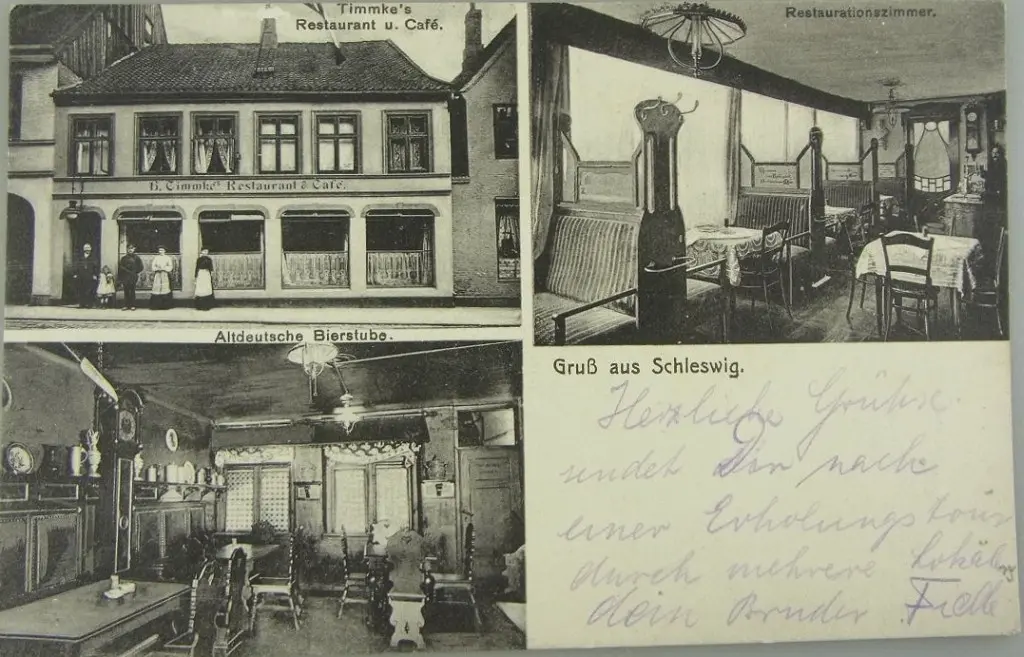 Timmke's
Restaurant u. Café.
Restaurationszimmer.
H. Timmke's Restaurant & Café.
Altdeutsche Bierstube.
Gruß aus Schleswig.
Herzliche Grüße
sendet Dir nach
einer Erholungstour
durch mehrere Lokäle
dein Bruder